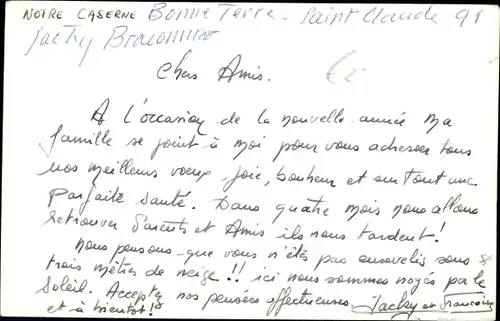 NOTRE CASERNE Bonne Terre - Saint Claude 91
Jacky Braconnier
Chers Amis.
€2
A l'occasion de la nouvelle année ma
famille se joint à moi pour vous adresser tous
nos meilleurs voeux, joie, bonheur et surtout une
parfaite santé. Dans quatre mois nous allons
retrouver Parents et Amis ils nous tardent!
Nous pensons que vous n'êtes pas ensevelis sous
trois mètres de neige!! ici nous sommes noyés par le
Soleil. Acceptez nos pensées affectueuses Jacky et Francoise
et à bientôt!